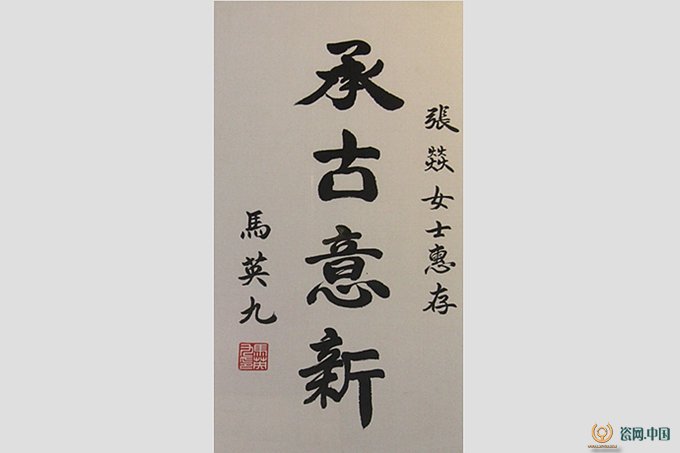 張燚女士惠存
承古意新
馬英九
瓷网.中国